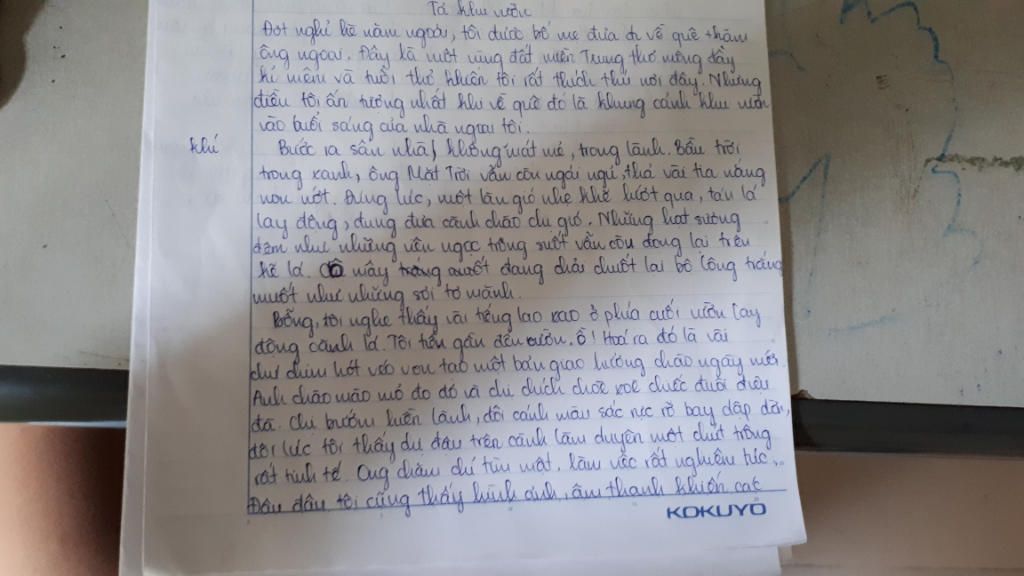 Tả khu vườn
Đợt nghỉ hè năm ngoái, tôi được bố mẹ đưa đi về quê thăm
ông ngoại. Đây là một vùng đất miền Trung thơ mộng đầy
kỉ niệm và tuổi thơ khiến tôi rất thích thú nơi đây. Những
điều tôi ấn tượng nhất khi về quê đó là khung cảnh khu vườn
vào buổi sáng của nhà ngoại tôi.
khí Bước ra sân nhà, không mát mẻ, trong lành. Bầu trời
trong xanh, ông Mặt Trời vẫn còn ngái ngủ, thả vài tia nắng
non nớt. Đúng lúc, một làn gió nhẹ khẽ lướt qua, tán lá
lay động, đung đưa cành chào chị gió. Những hạt sương
đêm như những viên ngọc trong suốt vẫn còn đọng lại trên
kẽ lá. Cô mây trắng muốt đang chải chuốt lại bộ lông trắng
muốt như những sợi tơ mảnh.
Bỗng, tôi nghe thấy vài tiếng lao xao ở phía cuối vườn lay
động cành lá. Tôi tiến gần đến vườn. Ồ! Hoá ra đó là vài
chú chim hót véo von tạo một bản giao hưởng chào ngày mới.
Anh chào mào mỏ đo đỏ và chị chích choè xoè chiếc đuôi điệu
đà. Chị bướm hiền lành, đôi cánh màu sắc rực rỡ bay dập dờn,
đôi lúc tôi thấy chị đậu trên cành làm duyên một chút trông
rất tinh tế. Ong chăm chỉ tìm mật, làm việc rất nghiêm túc,..
Đâu đâu tôi cũng thấy hình ảnh, âm thanh khiến các
KOKUYO